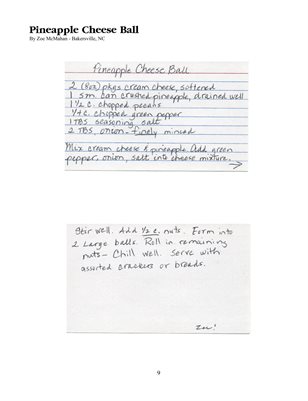 Pineapple Cheese Ball
By Zoe McMahan - Bakersville, NC
Pineapple Cheese Ball
2 (8oz) pkgs cream cheese, softened
1 sm. can crushed pineapple, drained well
1 1/2 c. chopped pecans
1/4 c. chopped green pepper
1 TBS. seasoning salt
2 TBS. onion - finely minced
Mix cream cheese & pineapple. Add green
pepper, onion, salt into cheese mixture.
→
Stir well. Add 1/2 c. nuts. Form into
2 Large balls. Roll in remaining
nuts - Chill well. Serve with
assorted crackers or breads.
Zoe!
9